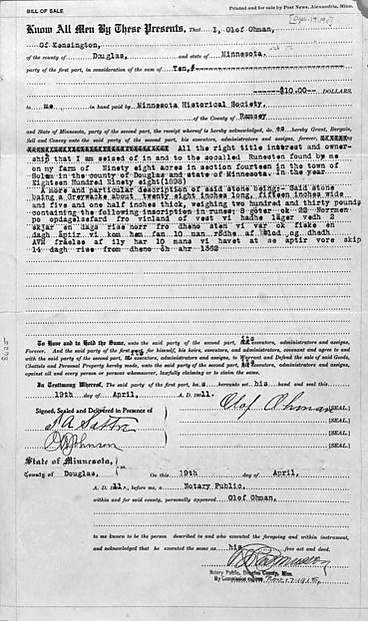 BILL OF SALE
Printed and for sale by Post News, Alexandria, Minn.
Know All Men By These Presents, That I, Olof Ohman,
Of Kensington,
of the county of Douglas, and state of Minnesota.
party of the first part, in consideration of the sum of Ten,
$10.00 DOLLARS,
to me in hand paid by Minnesota Historical Society,
of the County of Ramsey
and State of Minnesota, party of the second part, the receipt whereof is hereby acknowledged, do hereby Grant, Bargain,
Sell and Convey unto the said party of the second part, his executors, administrators and assigns, forever,
All the right title interest and owner-
ship that I am seized of in and to the socalled Runesten found by me
on my farm of Ninety eight acres in section fourteen in the town of
Solem in the county of Douglas and state of Minnesota. in the year
Eighteen Hundred Ninety eight(1898)
A More and particular description of said stone being:- Said stone
being a Greywacke about twenty eight inches long, fifteen inches wide
and five and one half inches thick, weighing two hundred and thirty pounds,
containing the following inscription in runes: 8 göter ok 22 Norrmen
po opdagelsefard fro vinland of vest vi hadhe läger vedh 2
skjar en dags rise norr fro dheno sten vi var ok fiske en
dagh äptir vi kom hem fan 10 man rödhe af blod og dhedh
AVM fräelse af illy har 10 mans vi havet at se äptir vore skip
14 dagh rise from dheno öh ahr 1362
To Have and to Hold the Same, unto the said party of the second part, its executors, administrators and assigns,
Forever. And the said party of the first part for himself, his heirs, executors, and administrators, covenant and agree to and
with the said party of the second part, its executors, administrators and assigns, to Warrant and Defend the sale of said Goods,
Chattels and Personal Property hereby made, unto the said party of the second part, its executors, administrators and assigns,
against all and every person or persons whomsoever, lawfully claiming or to claim the same.
In Testimony Whereof, The said party of the first part, has hereunto set his hand and seal this
19th day of April, A. D. 1911.
Olof Ohman (SEAL)
Signed, Sealed and Delivered in Presence of
(SEAL)
(SEAL)
(SEAL)
State of Minnesota,
County of Douglas, ss. On this 19th day of April,
A. D. 11., before me, a Notary Public,
within and for said county, personally appeared Olof Ohman,
to me known to be the person described in and who executed the foregoing and within instrument,
and acknowledged that he executed the same as his free act and deed.
Notary Public, Douglas County, Minn.
My Commission expires